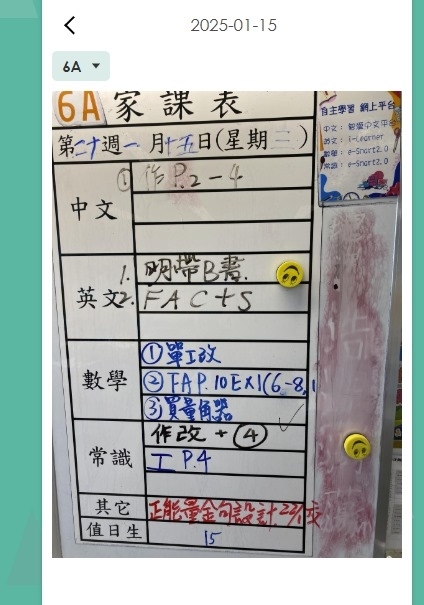 2025-01-15
6A
6A 家課表
自主學習 網上平台
第二十週 一月十五日(星期三)
中文: 智愛中文平台
英文: i-Learner
數學: e-Smart2.0
常識: e-Smart2.0
中文
① 作P.2-4
英文
1. 明帶B書.
2. FAC+S
數學
① 單工改
② FA P.10 EX1(6-8,
③ 買量角器
常識
作改 + ④
工 P.4
其它
正能量金句設計 22/1交
值日生
15